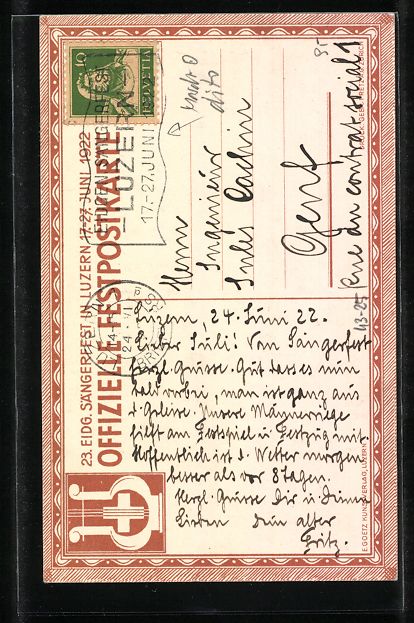 10
HELVETIA
EIDGEN. SÄNGERFEST
LUZERN
17.-27.JUNI
23. EIDG. SÄNGERFEST IN LUZERN 17.-27. JUNI 1922
OFFIZIELLE FESTPOSTKARTE
dito
Herrn
Ingenieur
Jules Cachin
Genf
Rue du contrat social 1
Luzern, 24. Juni 22.
Lieber Juli! Vom Sängerfest
herzl. Grüsse. Gut dass es nun
bald vorbei, man ist ganz aus
d. Geleise. Unsere Männerriege
hilft am Festspiel u. Festzug mit.
Hoffentlich ist d. Wetter morgen
besser als vor 8 Tagen.
Herzl. Grüsse Dir u. Deinen
Lieben dein alter
Fritz.
43-05
E. GOETZ KUNSTVERLAG, LUZERN